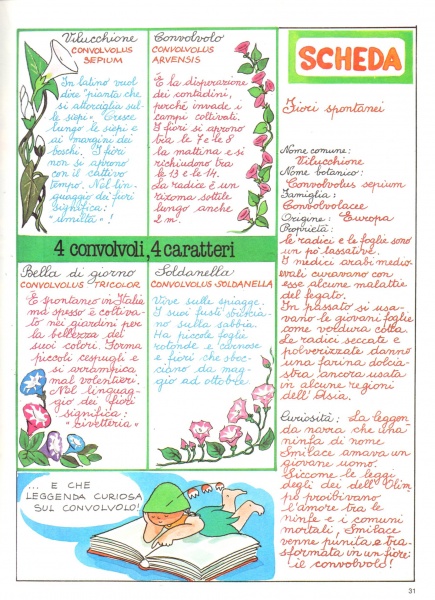 Vilucchione
CONVOLVOLUS
SEPIUM
In latino vuol
dire "pianta che
si attorciglia sul-
le siepi". Cresce
lungo le siepi e
ai margini dei
boschi. I fiori
non si aprono
con il cattivo
tempo. Nel lin-
guaggio dei fiori
significa:
"umiltà"!
Convolvolo
CONVOLVOLUS
ARVENSIS
È la disperazione
dei contadini,
perché invade i
campi coltivati.
I fiori si aprono
fra le 7 e le 8
la mattina e si
richiudono tra
le 13 e le 14.
La radice è un
rizoma sottile
lungo anche
2 m.
4 convolvoli, 4 caratteri
Bella di giorno
CONVOLVOLUS TRICOLOR
È spontaneo in Italia
ma spesso è coltiva-
to nei giardini per
la bellezza dei
suoi colori. Forma
piccoli cespugli e
si arrampica
mal volentieri.
Nel linguag-
gio dei fiori
significa:
"civetteria"
Soldanella
CONVOLVOLUS SOLDANELLA
Vive sulle spiagge.
I suoi fusti striscia-
no sulla sabbia.
Ha piccole foglie
rotonde e carnose
e fiori che sboc-
ciano da mag-
gio ad ottobre.
... E CHE
LEGGENDA CURIOSA
SUL CONVOLVOLO!
SCHEDA
Fiori spontanei
Nome comune:
Vilucchione
Nome botanico:
Convolvolus sepium
Famiglia:
Convolvolacee
Origine: Europa
Proprietà:
le radici e le foglie sono
un po' lassative.
I medici arabi medio-
evali curavano con
esse alcune malattie
del fegato.
In passato si usa-
vano le giovani foglie
come verdura cotta.
Le radici seccate e
polverizzate danno
una farina dolcia-
stra ancora usata
in alcune regioni
dell'Asia.
Curiosità: La leggen-
da narra che una
ninfa di nome
Smilace amava un
giovane uomo.
Siccome le leggi
degli dei dell'Olim-
po proibivano
l'amore tra le
ninfe e i comuni
mortali, Smilace
venne punita e tra-
sformata in un fiore:
il convolvolo!
31